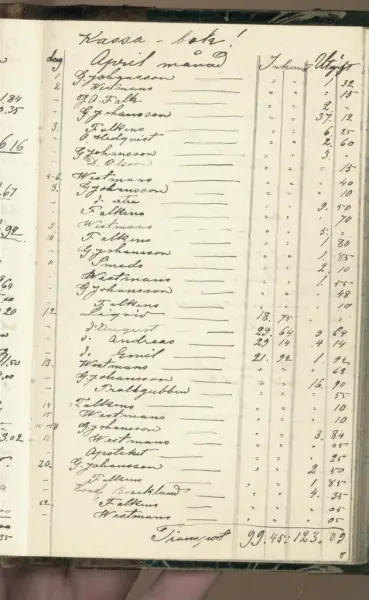 Kassa-bok!
dag April månad Inkomst Utgift
1 G. Johansson " " 1 32
2 Westmans " " " 15
- G. A. Falk " " 2 -
- G Johansson " " 37 12
3. Falkens " " 6 25
- " " 2 60
- G Johansson " " 3 "
- d. Olson " " " 15
4-6 Westmans " " " 40
8. G Johansson " " " 10
- " " 9. 50
- Falkens " " " 70
9 Westmans " " 5. "
10 Falkens " " 1 80
" G Johansson " " 1 85
" Smeds " " 2 10
- Westmans " " 1.
- G Johansson " " " 48
- Falkens " " " 10
12 Liqvid 18. 75
- d: August 29. 64 9 64
- d: Andreas 29 14 4 14
- d: Emil 21. 92 1. 92
13 Westmans " " " 68
- G Johansson " " 16. 90
- " " " 55
14 Falkens " " " 10
15 Westmans " " " 10
G Johansson " " 3. 84
Westmans " " " 05
- Apoteket " " " 25
20. G. Johansson " " 2 50
- Falkens " " 1 85
- " " 4. 35
22 Falkens " " " 05
- Westmans " " " 05
Transport 99. 45: 123. 09
1,84
6.16
,67
20
3.02